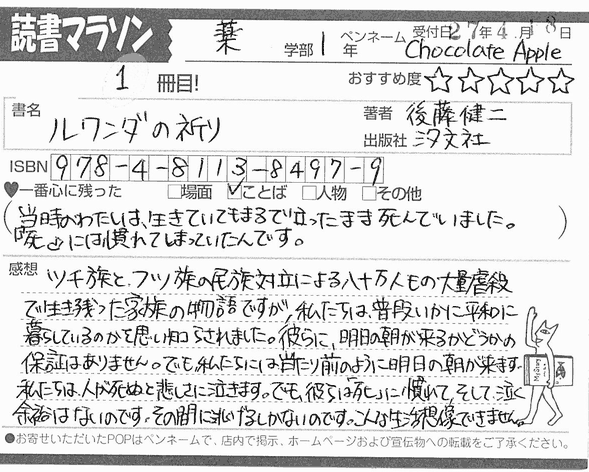 読書マラソン
薬 学部 1 年 ペンネーム 受付日 27年4月18日
Chocolate Apple
1 冊目! おすすめ度 ☆☆☆☆☆
書名 ルワンダの祈り
著者 後藤健二
出版社 汐文社
ISBN 978-4-8113-8497-9
♥一番心に残った □場面 ☑ことば □人物 □その他
(当時わたしは、生きていてもまるで立ったまま死んでいました。
「死」には慣れてしまっていたんです。)
感想 ツチ族と、フツ族の民族対立による八十万人もの大量虐殺
で生き残った家族の物語ですが、私たちは、普段いかに平和に
暮らしているのかを思い知らされました。彼らに、明日の朝が来るかどうかの
保証はありません。でも、私たちには当たり前のように明日の朝が来ます。
私たちは、人が死ぬと悲しさに泣きます。でも、彼らは「死」に慣れて、そして、泣く
余裕はないのです。その間に逃げるしかないのです。こんな生活想像できません。
●お寄せいただいたPOPはペンネームで、店内で掲示、ホームページおよび宣伝物への転載をご了承ください。